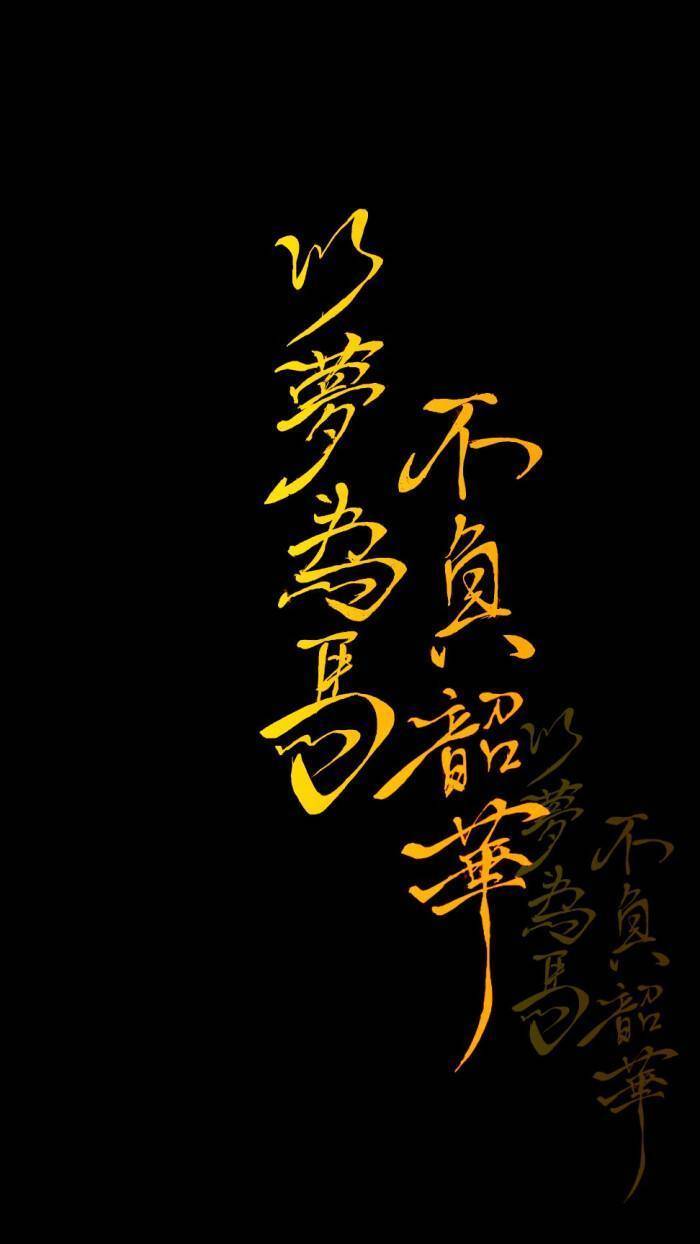 以夢為馬
不負韶華
以夢為馬
不負韶華